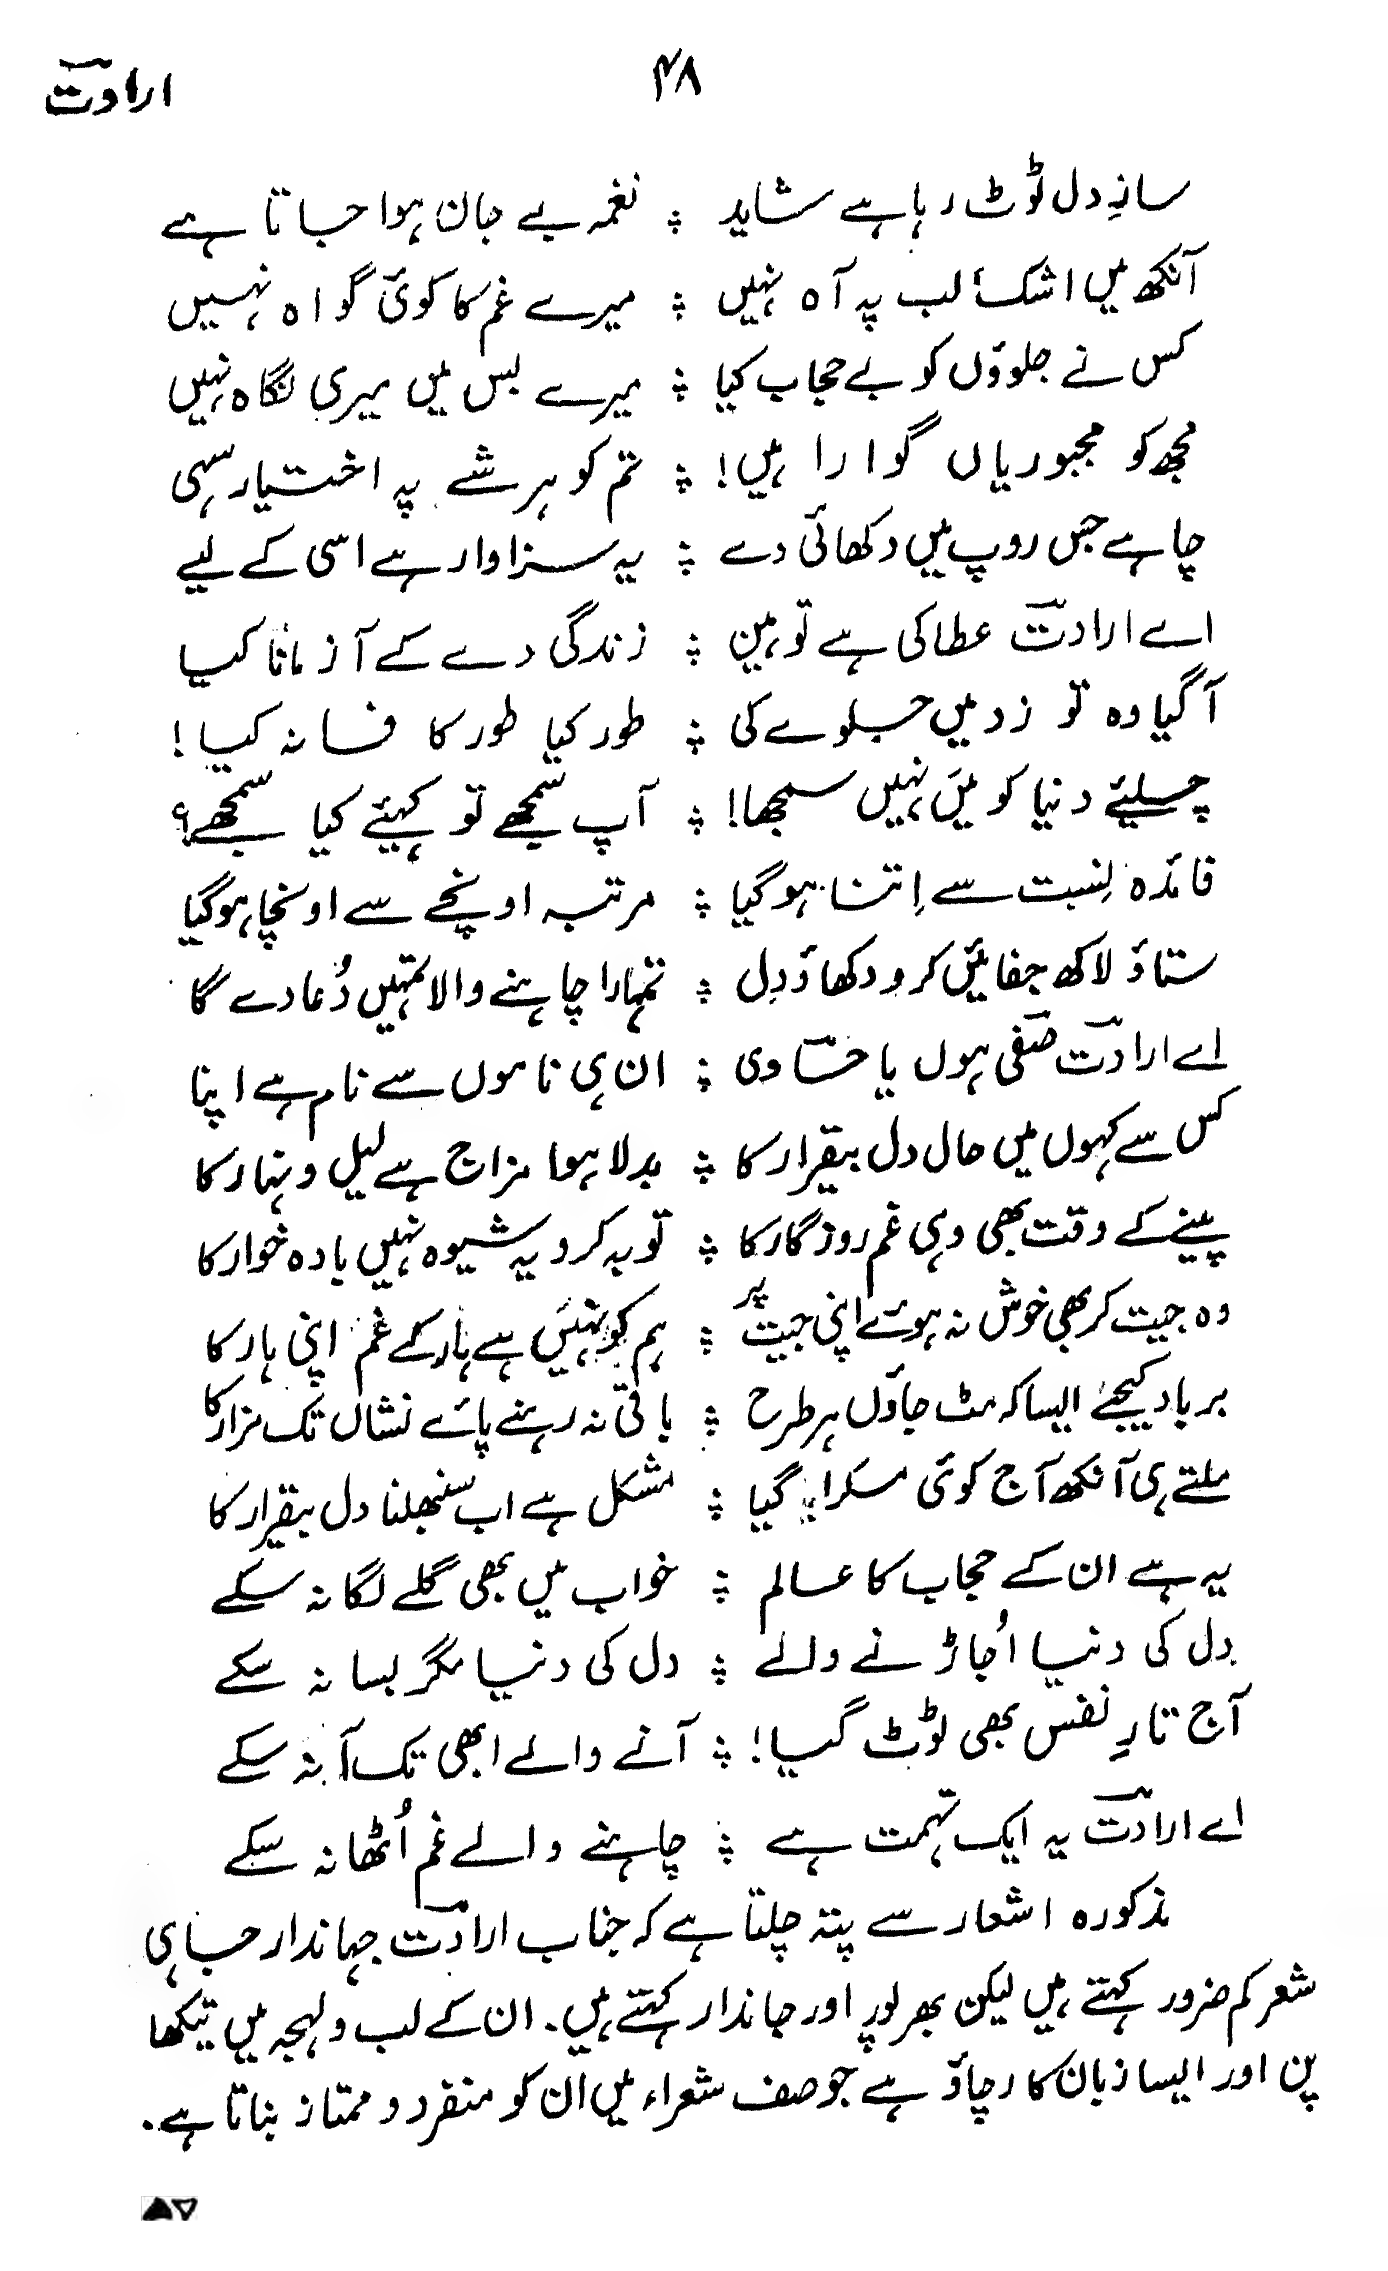 ۴۸ ارادت
سازِ دل ٹوٹ رہا ہے شاید ؞ نغمہ بے جان ہوا جاتا ہے
آنکھ میں اشک لب پہ آہ نہیں ؞ میرے غم کا کوئی گواہ نہیں
کس نے جلوؤں کو بے حجاب کیا ؞ میرے بس میں میری نگاہ نہیں
مجھ کو مجبوریاں گوارا ہیں! ؞ تم کو ہر شے پہ اختیار سہی
چاہے جس روپ میں دکھائی دے ؞ یہ سزاوار ہے اسی کے لیے
اے ارادتؔ عطا کی ہے توہین ؞ زندگی دے کے آزمانا کیا
آگیا وہ تو زد میں جلوے کی ؞ طور کیا طور کا فسانہ کیا!
چلیئے دنیا کو میں نہیں سمجھا! ؞ آپ سمجھے تو کہیئے کیا سمجھے؟
فائدہ نِسبت سے اِتنا ہوگیا ؞ مرتبہ اونچے سے اونچا ہوگیا
ستاؤ لاکھ جفائیں کرو دکھاؤ دِل ؞ تمہارا چاہنے والا تمہیں دُعا دے گا
اے ارادتؔ صفیؔ ہوں یا حاویؔ ؞ ان ہی ناموں سے نام ہے اپنا
کس سے کہوں میں حال دل بیقرار کا ؞ بدلا ہوا مزاج ہے لیل و نہار کا
پینے کے وقت بھی وہی غم روزگار کا ؞ توبہ کرو یہ شیوہ نہیں بادہ خوار کا
وہ جیت کر بھی خوش نہ ہوئے اپنی جیت پر ؞ ہم کو نہیں ہے ہار کے غم اپنی ہار کا
برباد کیجئے ایسا کہ مٹ جاؤں ہر طرح ؞ باقی نہ رہنے پائے نشاں تک مزار کا
ملتے ہی آنکھ آج کوئی مسکرا گیا ؞ مشکل ہے اب سنبھلنا دل بیقرار کا
یہ ہے ان کے حجاب کا عالم ؞ خواب میں بھی گلے لگا نہ سکے
دِل کی دنیا اُجاڑنے والے ؞ دل کی دنیا مگر بسا نہ سکے
آج تارِ نفس بھی ٹوٹ گیا! ؞ آنے والے ابھی تک آ نہ سکے
اے ارادتؔ یہ ایک تہمت ہے ؞ چاہنے والے غم اُٹھا نہ سکے
مذکورہ اشعار سے پتہ چلتا ہے کہ جناب ارادتؔ جہاندار جاہی
شعر کم ضرور کہتے ہیں لیکن بھرپور اور جاندار کہتے ہیں۔ ان کے لب و لہجہ میں تیکھا
پن اور ایسا زبان کا رچاؤ ہے جو صف شعراء میں ان کو منفرد و ممتاز بناتا ہے۔